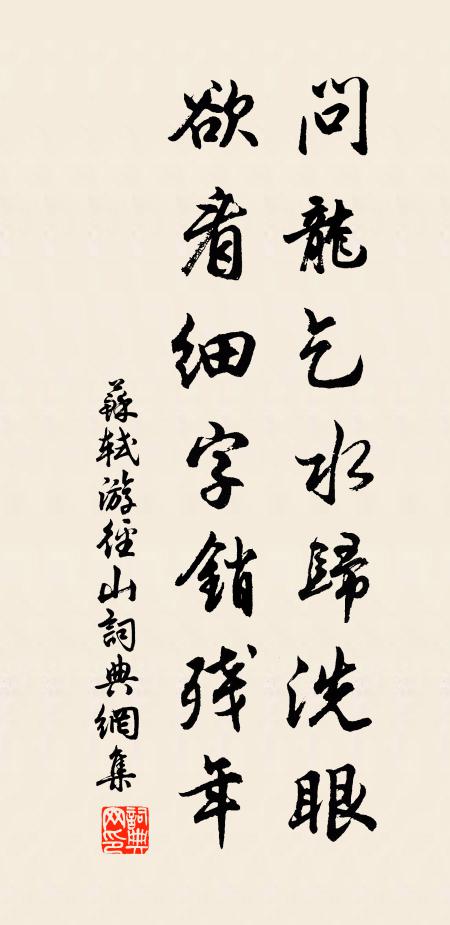 問龍乞水歸洗眼
欲看細字銷殘年
蘇軾游徑山詞典網集
詞典网印